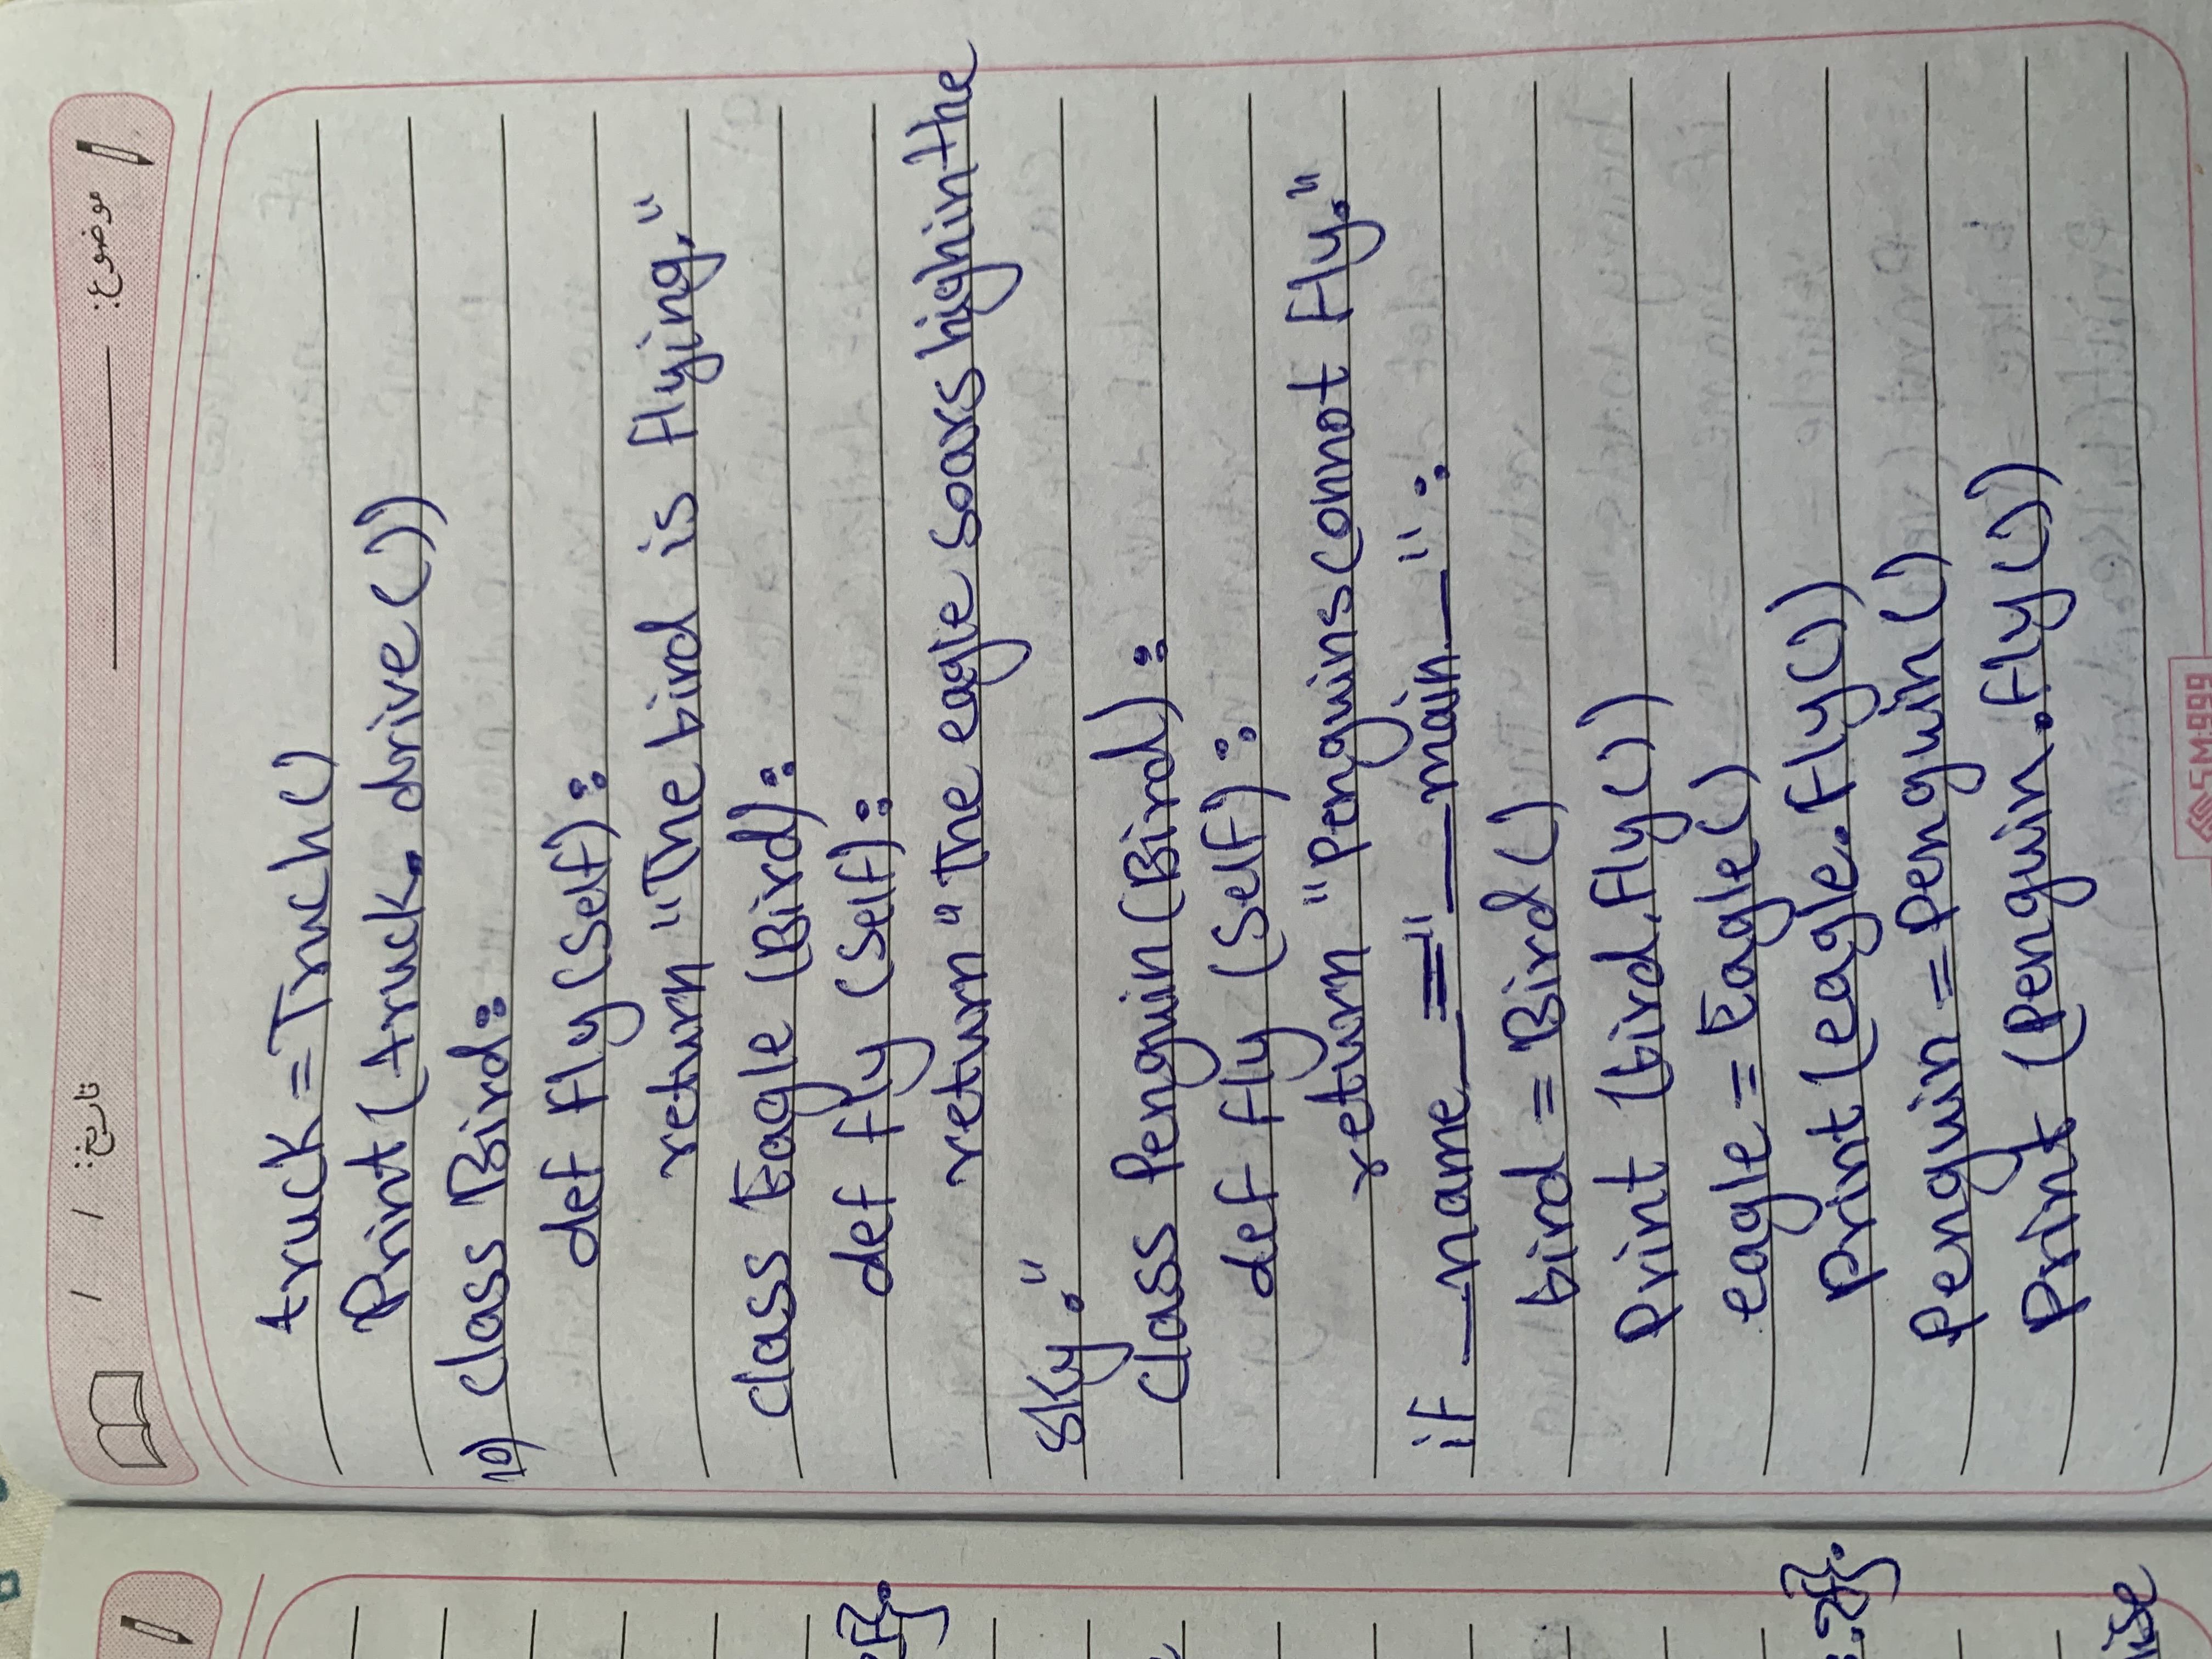 موضوع: تاریخ: / /
truck = Truch()
Print(truck. drive())
10) class Bird:
def Fly (Self):
return "The bird is flying."
class Eagle (Bird):
def fly (Self):
return "The eagle soars high in the
sky."
class Penguin (Bird):
def fly (Self):
return "Penguins connot fly."
if __name_=="__main__":
bird = Bird()
Print (bird.fly())
eagle = Eagle()
Print (eagle.Fly())
Penguin = Penguin()
Print (Penguin.fly())
SM:999